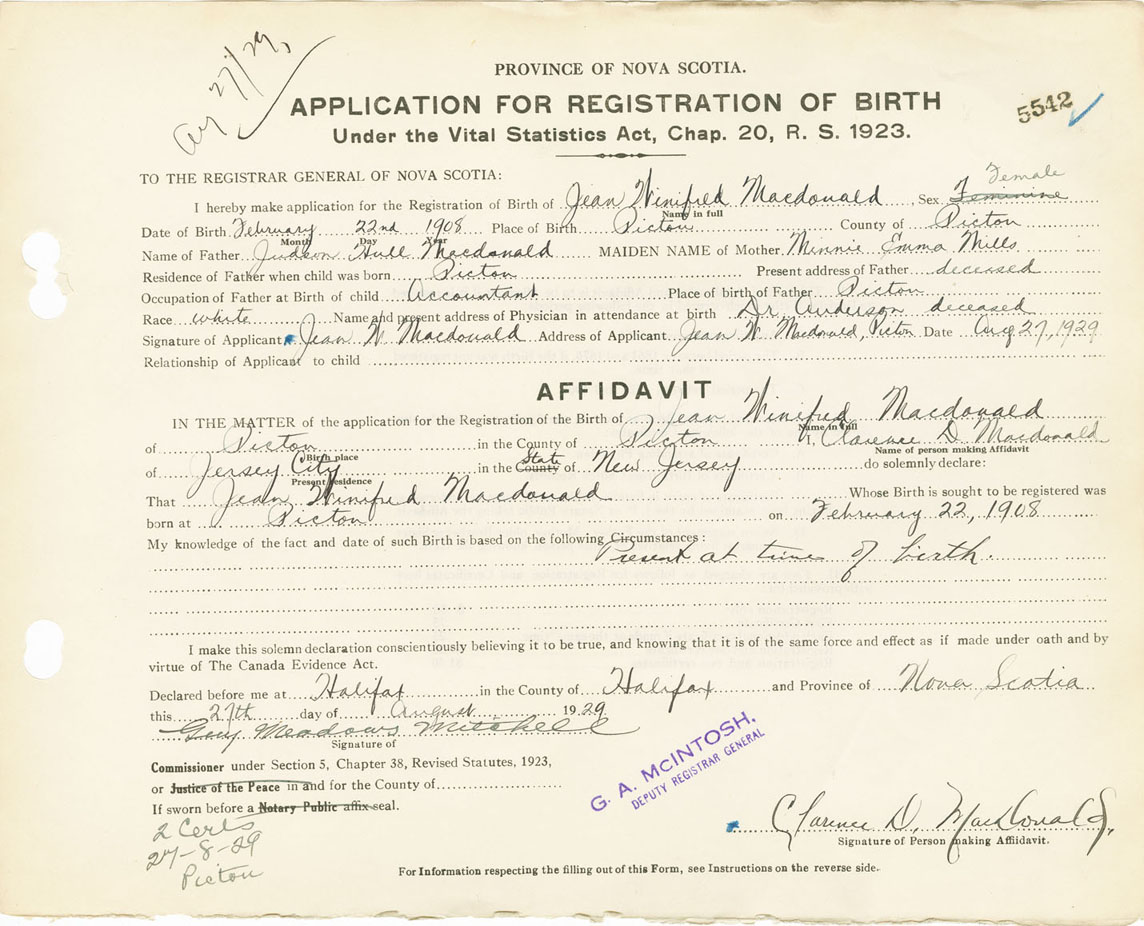 Aug 27/29,
PROVINCE OF NOVA SCOTIA.
APPLICATION FOR REGISTRATION OF BIRTH
5542
Under the Vital Statistics Act, Chap. 20, R. S. 1923.
TO THE REGISTRAR GENERAL OF NOVA SCOTIA:
Female
I hereby make application for the Registration of Birth of Jean Winifred Macdonald, Sex Feminine
Name in full
Date of Birth February 22nd 1908 Place of Birth Picton County of Picton
Month Day Year
Name of Father Judson Hull Macdonald MAIDEN NAME of Mother Minnie Emma Mills
Residence of Father when child was born Picton Present address of Father deceased
Occupation of Father at Birth of child Accountant Place of birth of Father Picton
Race white Name and present address of Physician in attendance at birth Dr. Anderson deceased
Signature of Applicant Jean W Macdonald Address of Applicant Jean W Macdonald, Picton Date Aug 27, 1929
Relationship of Applicant to child
AFFIDAVIT
IN THE MATTER of the application for the Registration of the Birth of Jean Winifred Macdonald
Name in full
of Picton in the County of Picton I, Clarence D. Macdonald
Birth place Name of person making Affidavit
of Jersey City in the County State of New Jersey do solemnly declare:
Present residence
That Jean Winifred Macdonald Whose Birth is sought to be registered was
born at Picton on February 22, 1908
My knowledge of the fact and date of such Birth is based on the following Circumstances:
Present at time of birth.
I make this solemn declaration conscientiously believing it to be true, and knowing that it is of the same force and effect as if made under oath and by
virtue of The Canada Evidence Act.
Declared before me at Halifax in the County of Halifax and Province of Nova Scotia
this 27th day of August 1929
Guy Meadows Mitchell
Signature of
G. A. McINTOSH.
DEPUTY REGISTRAR GENERAL
Commissioner under Section 5, Chapter 38, Revised Statutes, 1923,
or Justice of the Peace in and for the County of
If sworn before a Notary Public affix seal.
Clarence D. MacDonald.
Signature of Person making Affidavit.
2 Certs
27-8-29
Picton
For Information respecting the filling out of this Form, see Instructions on the reverse side.